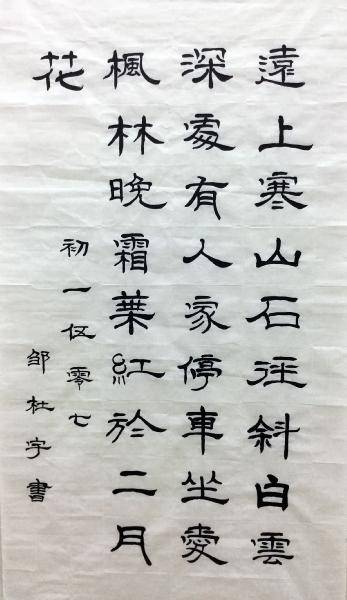 遠上寒山石徑斜白雲
深處有人家停車坐愛
楓林晚霜葉紅於二月
花
初一仅零七
邹杜宇書